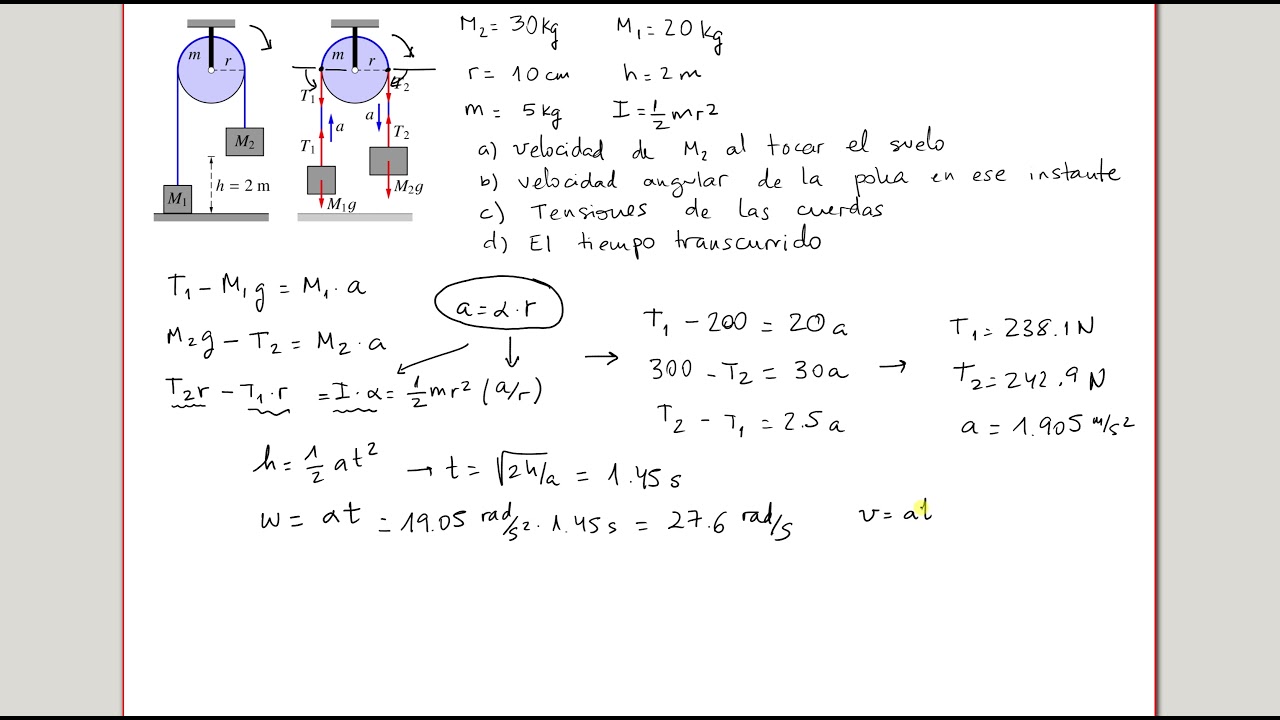 M₂ = 30 kg M₁ = 20 kg
r = 10 cm h = 2 m
m = 5 kg I = 1/2 mr²
a) velocidad de M₂ al tocar el suelo
b) velocidad angular de la polea en ese instante
c) Tensiones de las cuerdas
d) El tiempo transcurrido
m r
M₂
h = 2 m
M₁
m r
T₁ T₂
a a
T₁ T₂
M₁g M₂g
T₁ - M₁g = M₁ · a
M₂g - T₂ = M₂ · a
T₂r - T₁·r = I·α = 1/2 mr² (a/r)
a = α · r
→
T₁ - 200 = 20a
300 - T₂ = 30a →
T₂ - T₁ = 2.5a
T₁ = 238.1 N
T₂ = 242.9 N
a = 1.905 m/s²
h = 1/2 at² → t = √2h/a = 1.45 s
w = αt = 19.05 rad/s² · 1.45 s = 27.6 rad/s v = at